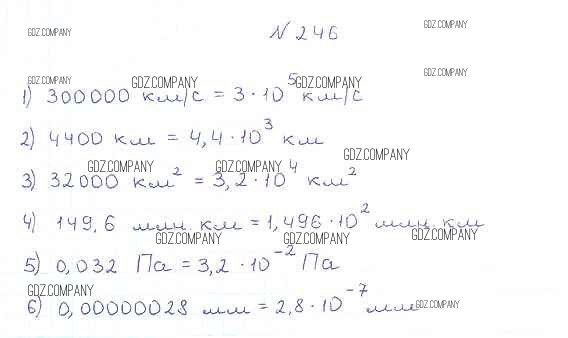 GDZ.COMPANY
N 246
GDZ.COMPANY
GDZ.COMPANY GDZ.COMPANY GDZ.COMPANY GDZ.COMPANY
1) 300000 км/с = 3 · 10⁵ км/с
2) 4400 км = 4,4 · 10³ км
GDZ.COMPANY GDZ.COMPANY GDZ.COMPANY
3) 32000 км² = 3,2 · 10⁴ км²
4) 149,6 млн. км = 1,496 · 10² млн. км
GDZ.COMPANY GDZ.COMPANY GDZ.COMPANY
5) 0,032 Па = 3,2 · 10⁻² Па
GDZ.COMPANY
6) 0,00000028 мм = 2,8 · 10⁻⁷ мм
GDZ.COMPANY